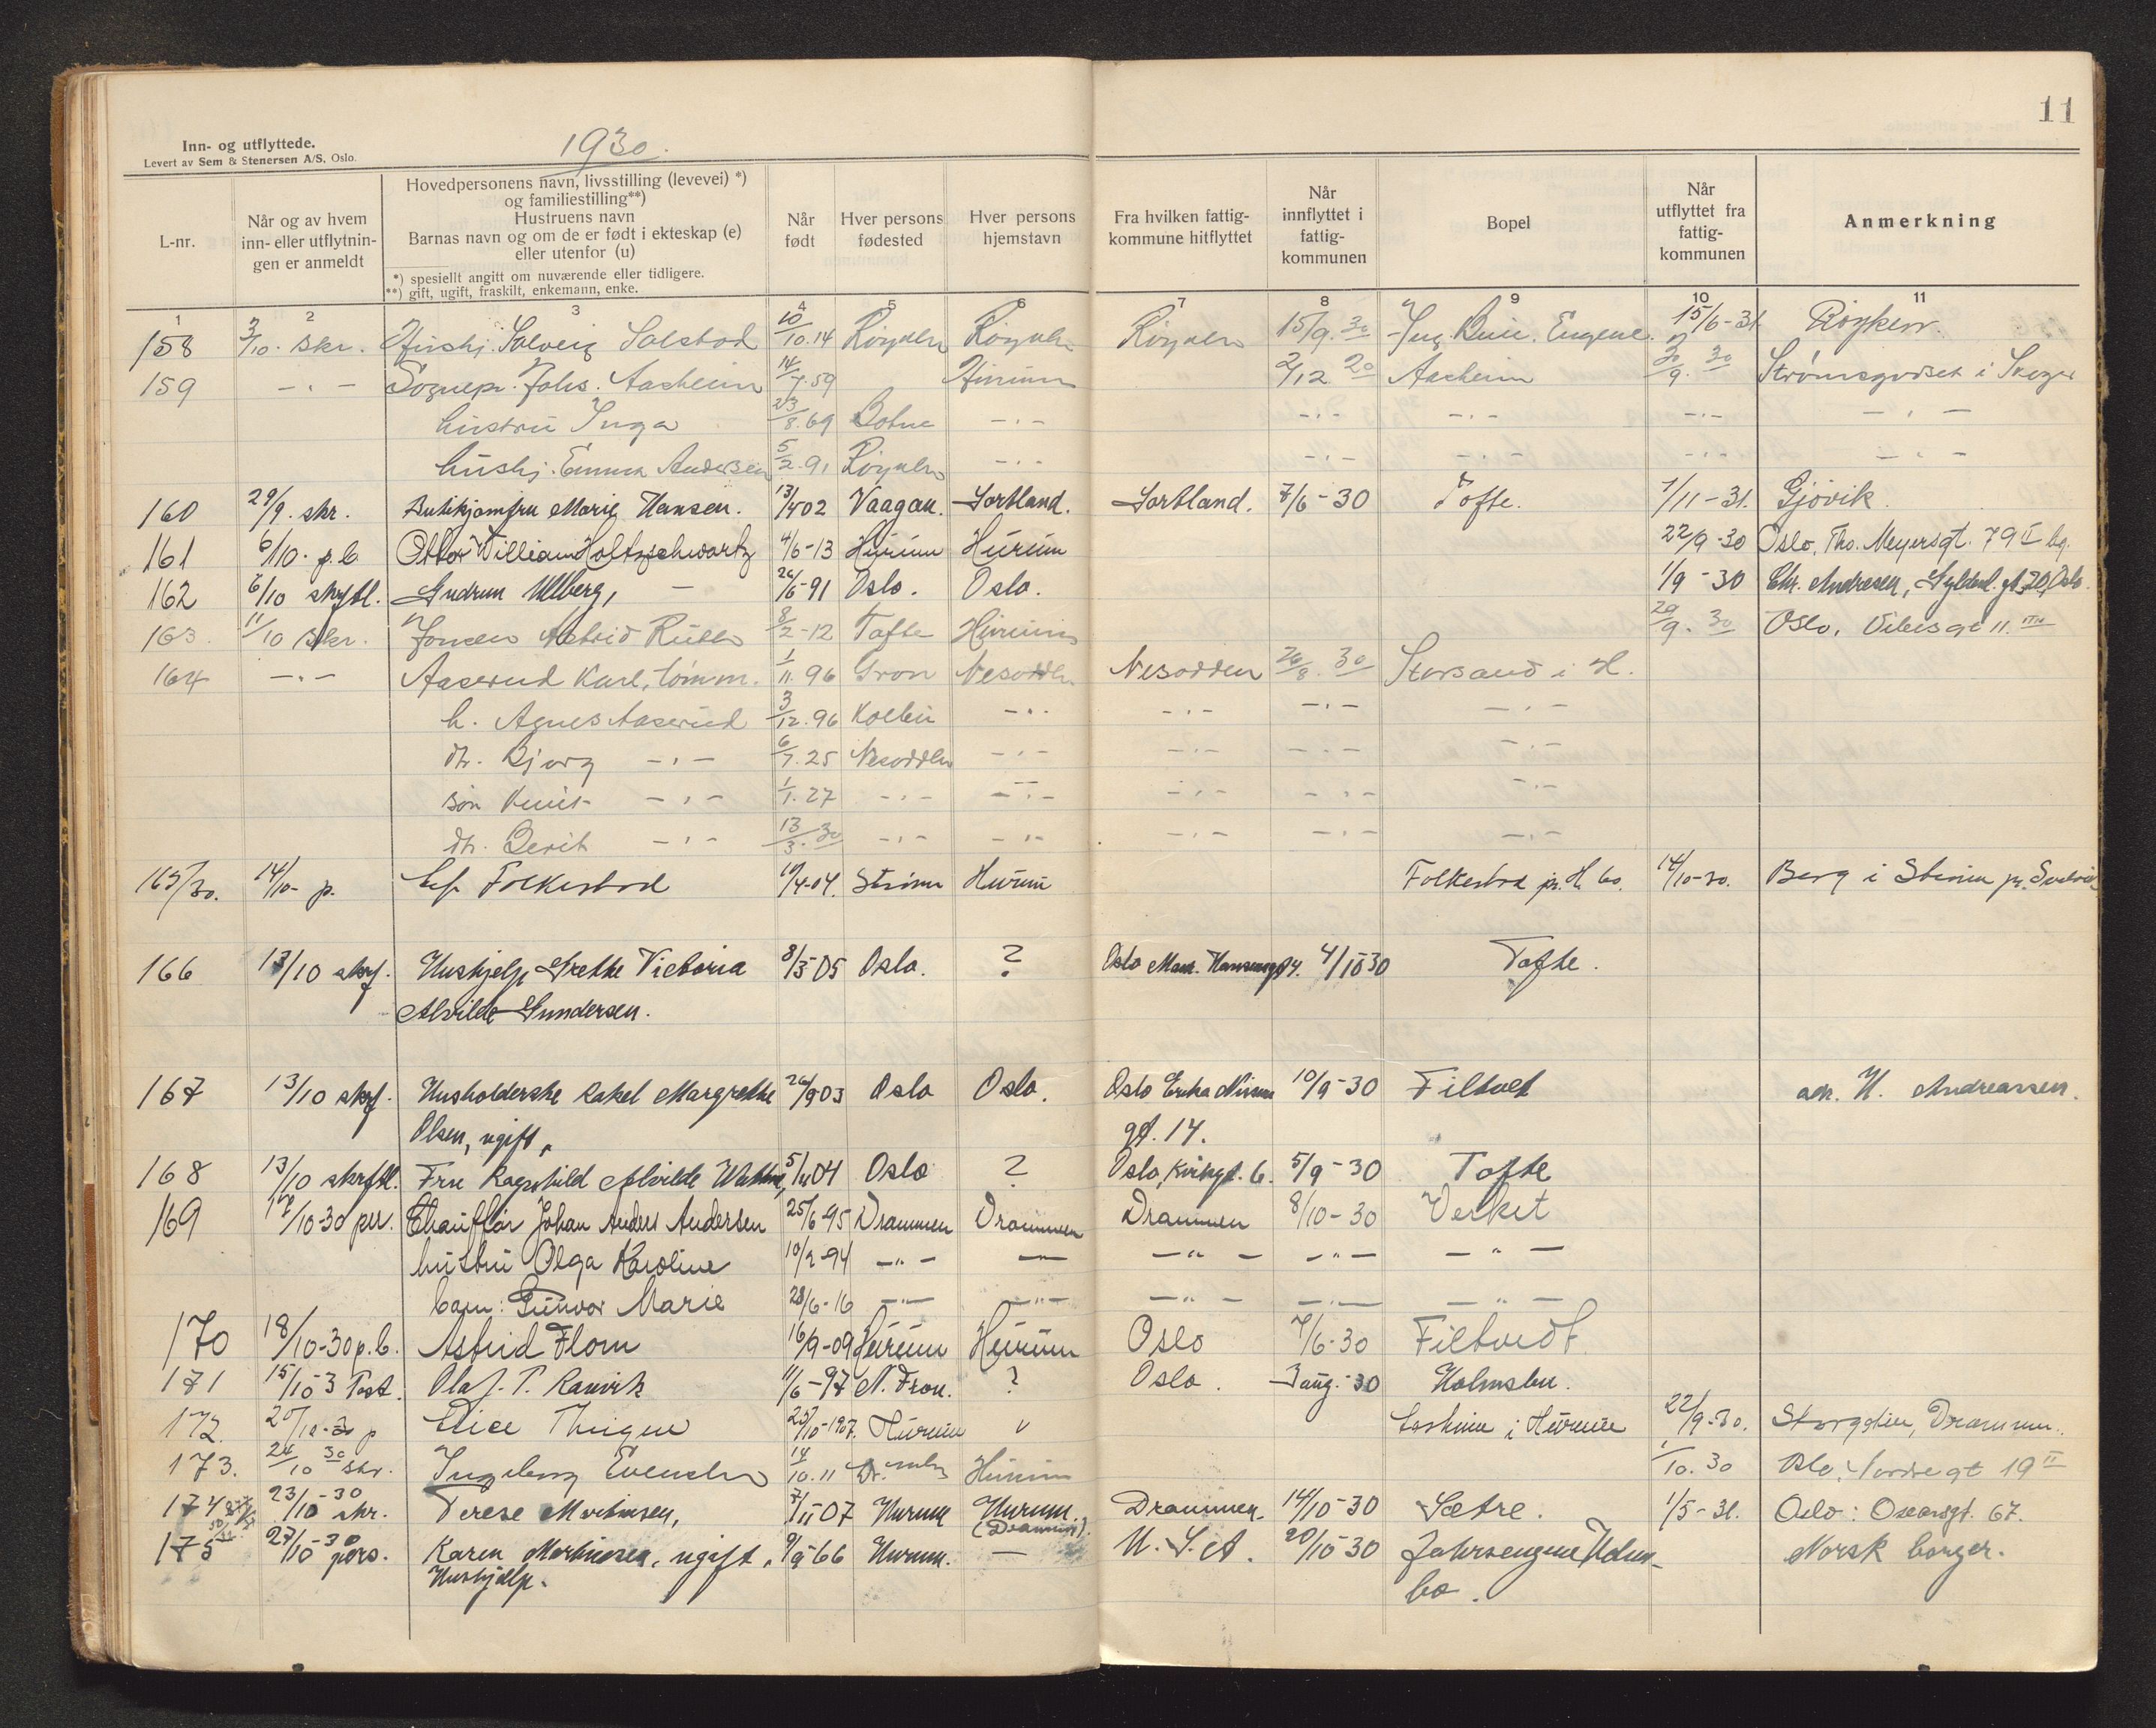 11
Inn- og utflyttede.
Levert av Sem & Stenersen A/S, Oslo.
1930.
L-nr.
Når og av hvem inn- eller utflytnin- gen er anmeldt
Hovedpersonens navn, livsstilling (levevei) *)
og familiestilling**)
Hustruens navn
Barnas navn og om de er født i ekteskap (e)
eller utenfor (u)
*) spesiellt angitt om nuværende eller tidligere.
**) gift, ugift, fraskilt, enkemann, enke.
Når født
Hver persons fødested
Hver persons hjemstavn
Fra hvilken fattig- kommune hitflyttet
Når innflyttet i fattig- kommunen
Bopel
Når utflyttet fra fattig- kommunen
Anmerkning
1 2 3 4 5 6 7 8 9 10 11
158 3/10. skr. Hushj. Solveig Solstad 10/10.14 Røyken Røyken Røyken 15/9.30 15/6-31 Røyken.
159 -"- Sognepr. Johs. Aasheim 14/7.59 Hurum 2/12 20 Aasheim 30/9. 30 Strømsgodset i Skoger
hustru Inga 23/8.69 Botne -"- -"- -"- -"- -"-
hushj. Emma Andersen 5/2.91 Røyken -"- -"- -"- -"- -"-
160 29/9. skr. Butikjomfru Marie Hansen. 13/4 02 Vaagan. Sortland. Sortland. 7/6-30 Tofte. 1/11-31. Gjøvik.
161 6/10. p.b. Ottar William Holtzschwartz 4/6-13 Hurum Hurum 22/9-30 Oslo, Tho. Meyersgt. 79 II bg.
162 6/10 skrftl. Gudrun Ullberg, - 26/6-91 Oslo. Oslo. 1/9-30 Chr. Andresen, Gyldenl. gt. 20, Oslo.
163 11/10 skr. Jonsen Astrid Ruth 8/2-12 Tofte Hurum 20/9. 30 Oslo, Vibesgt 11. III
164 -"- Aaserud Karl, tømm. 1/11.96 Gran Nesodden Nesodden 26/8. 30 Storsand i H.
h. Agnes Aaserud 3/12.96 Kolbu -"- -"- -"- -"-
dt. Bjørg -"- 6/7.25 Nesodden -"- -"- -"- -"-
søn Knut -"- 1/1.27 -"- -"- -"- -"- -"-
dt. Berit -"- 13/3.30 -"- -"- -"- -"- -"-
165/30. 14/10- p. Folkestad 10/4-04. Strøm Hurum Folkestad pr. H. bo. 14/10-30. Berg i Strøm pr. Svelvik
166 13/10 skrf. Hushjelp Grethe Victoria 8/5-05 Oslo. ? Oslo 4/10 30 Tofte.
Alvilde Gundersen.
167 13/10 skrf. Husholderske Rakel Margrethe 26/9 03 Oslo Oslo. Oslo Erika Nissens 10/9-30 Filtvet adr. H. Andreassen.
Olsen, ugift, gt. 14.
168 13/10 skrftl. Fru Ragnhild Alvilde 5/11 04 Oslo ? Oslo, Kirkegt. 6. 5/9-30 Tofte
169 17/10-30 per. Chauffør Johan Anders Andersen 25/6-95 Drammen Drammen Drammen 8/10-30 Verket
hustru Olga Karoline 10/2-94 -"- - -"- -"- -"-
barn: Gunvor Marie 28/6-16 -"- -"- -"- -"- -"-
170 18/10-30 p.b. Astrid Flom 16/9-09 Hurum Hurum Oslo 7/6-30 Filtvedt
171 15/10-3 Post. Olaf. P. Ranvik 11/6-97 N. Fron. ? Oslo. 3 aug.-30 Holmsbu.
172. 20/10-30 p 25/10-1907. Hurum " i Hurum 22/9-30. Storgaten, Drammen.
173. 24/10 30 skr. Ingeborg Evensen 14/10.11 Hurum 1/10.30 Oslo, Nordregt 19 II
174 23/10-30 skr. Terese Martinsen, 7/11 07 Hurum Hurum. Drammen. 14/10-30 Sætre. 1/5-31. Oslo: Oscarsgt. 67.
(Drammen)
175 27/10-30 pers. Karen Martinsen, ugift, 9/9-66 Hurum. - U. S. A. 20/10-30 Norsk borger.
Hushjelp. bo.